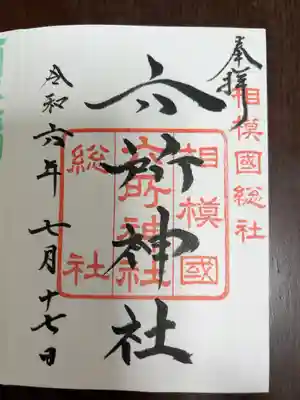 奉拝
相模國総社
六所神社
相模國
六所神社
総社
令和六年七月十七日